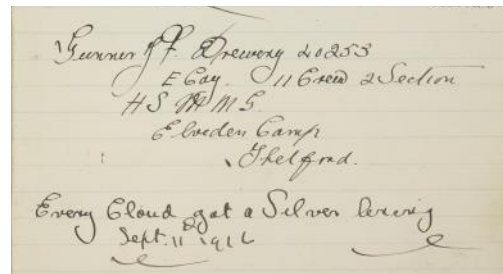 Gunner J.F. Drewery 40255
E Coy. 11 Crew 2 Section
H S M M G.
Elveden Camp
Thetford.
Every Cloud got a Silver lening
Sept. 11th 1916